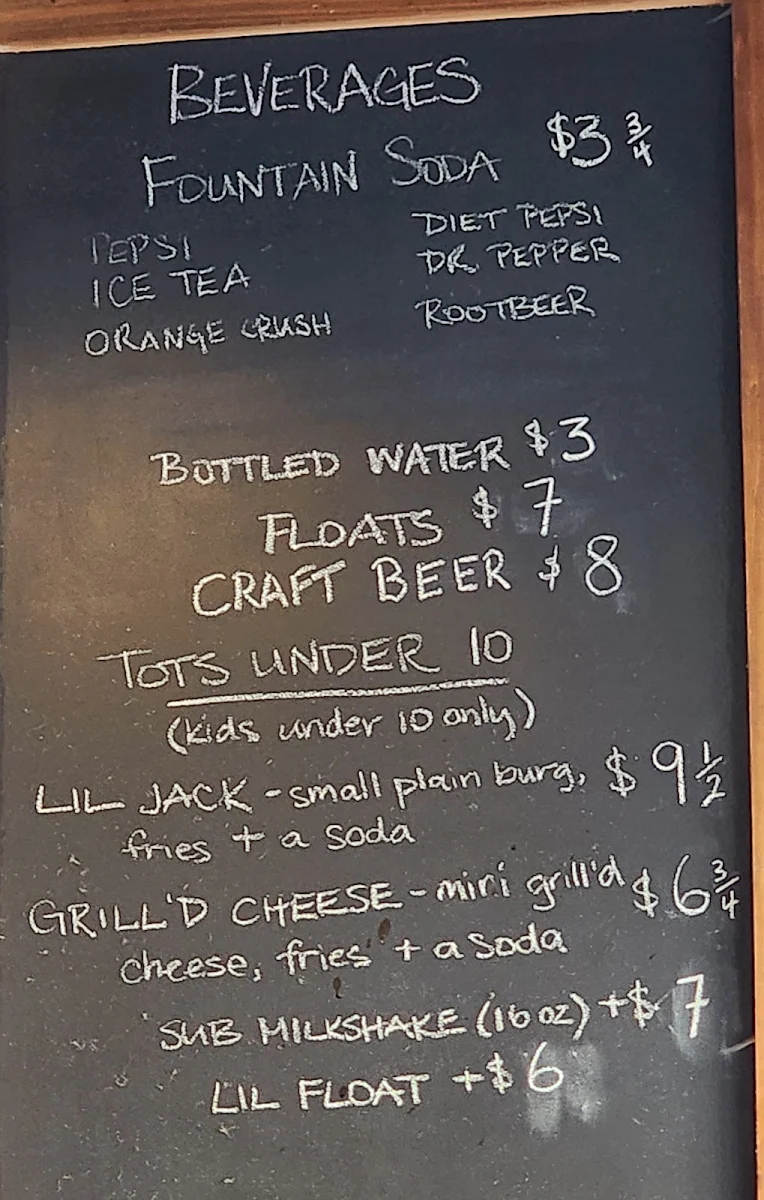 BEVERAGES
FOUNTAIN SODA $3 3/4
PEPSI DIET PEPSI
ICE TEA DR. PEPPER
ORANGE CRUSH ROOTBEER
BOTTLED WATER $3
FLOATS $7
CRAFT BEER $8
TOTS UNDER 10
(kids under 10 only)
LIL JACK - small plain burg, $9 1/2
fries + a soda
GRILL'D CHEESE - mini grill'd $6 3/4
cheese, fries + a soda
SUB MILKSHAKE (16 oz) +$7
LIL FLOAT +$6